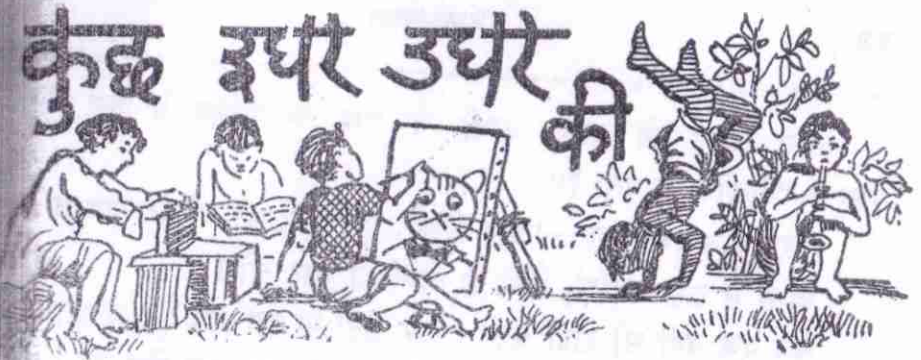 कुछ इधर उधर की